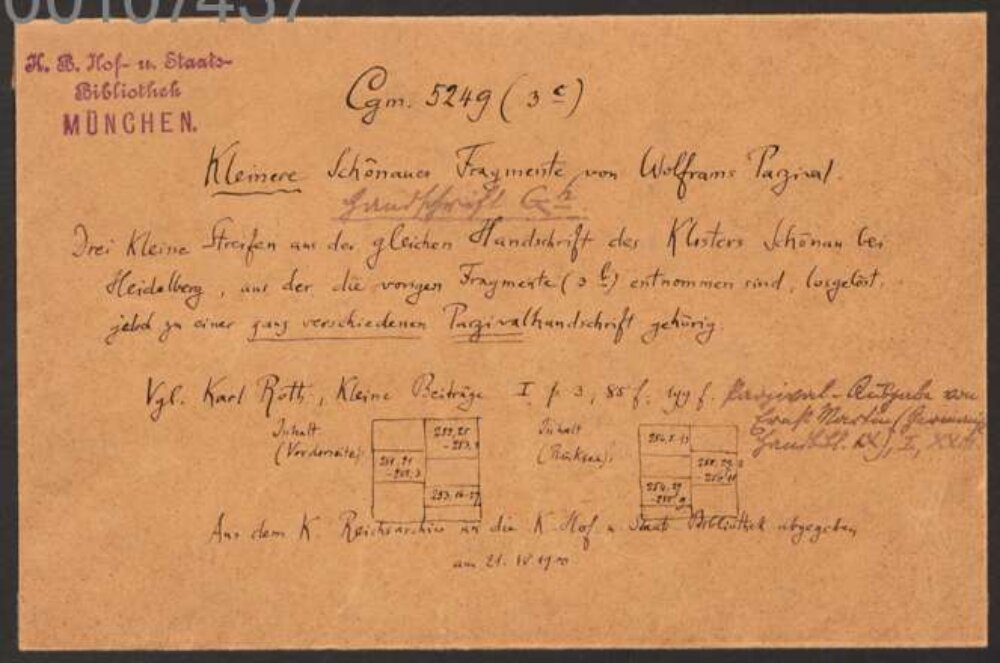 00107437
K. B. Hof- u. Staats-
Bibliothek
MÜNCHEN.
Cgm. 5249 (3 c)
Kleinere Schönauer Fragmente von Wolframs Parzival.
Handschrift G k
Drei kleine Streifen aus der gleichen Handschrift des Klosters Schönau bei
Heidelberg, aus der die vorigen Fragmente (3 b) entnommen sind, losgelöst,
jedoch zu einer ganz verschiedenen Parzivalhandschrift gehörig.
Vgl. Karl Roth, Kleine Beiträge I p 3, 85 f. 199 f. Parzival-Ausgabe von
Ernst Martin (German.
Handbibl. IX), I,
Inhalt
(Vorderseite):
253, 16-27
Inhalt
(Rückseite):
Aus dem K Reichsarchiv an die K Hof u Staats Bibliothek abgegeben
am 21. IV. 1900